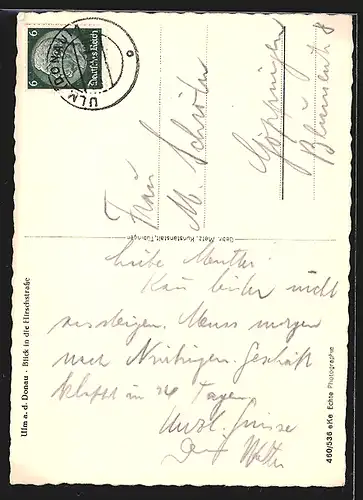 6 Deutsches Reich 6
ULM (DONAU)
Frau
M. Schröter
Göppingen
Blumenstr. 8
Gebr. Metz, Kunstanstalt, Tübingen
Liebe Mutter!
Kann leider nicht
aussteigen. Muss morgen
nach Nürtingen. Geschäft
klappt in 14 Tagen.
Herzl. Grüsse
Dein Walter
Ulm a. d. Donau - Blick in die Hirschstraße
460/536 eKe Echte Photographie